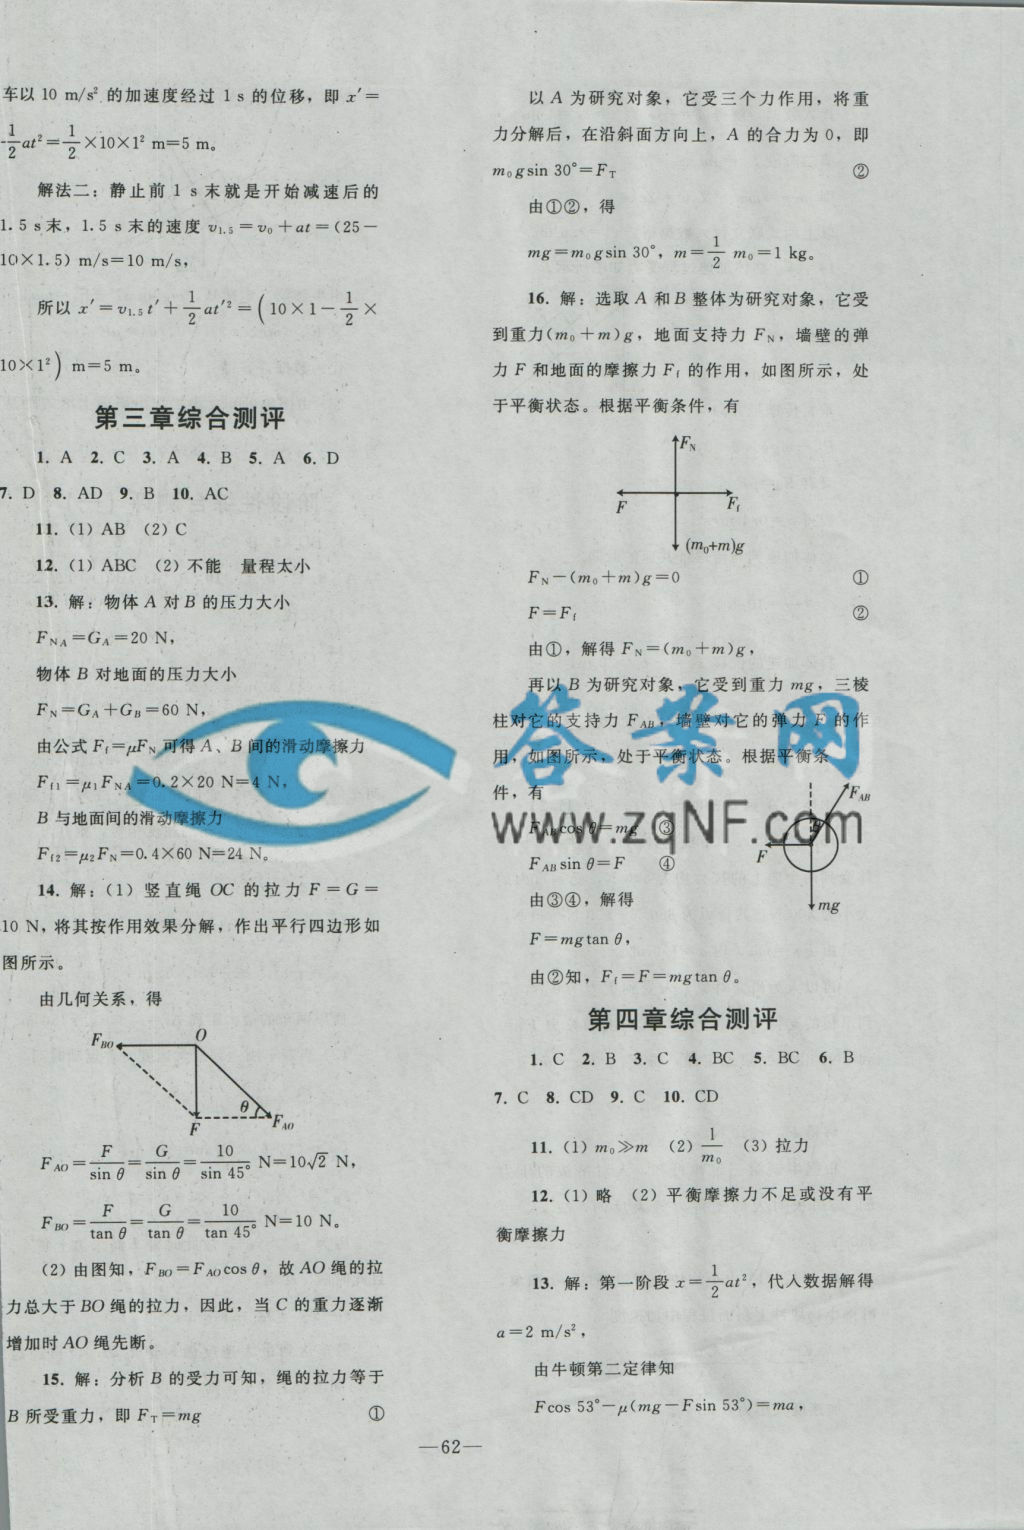 车以 10 m/s² 的加速度经过 1 s 的位移，即 x′＝
½at²＝½×10×1² m＝5 m。
解法二：静止前 1 s 末就是开始减速后的
1.5 s末，1.5 s末的速度 v₁.₅＝v₀＋at＝(25－
10×1.5) m/s＝10 m/s，
所以 x′＝v₁.₅t′＋½at′²＝(10×1－½×
10×1²) m＝5 m。
第三章综合测评
1. A 2. C 3. A 4. B 5. A 6. D
7. D 8. AD 9. B 10. AC
11. (1) AB (2) C
12. (1) ABC (2) 不能 量程太小
13. 解：物体 A 对 B 的压力大小
F_NA＝G_A＝20 N，
物体 B 对地面的压力大小
F_N＝G_A＋G_B＝60 N，
由公式 F_f＝μF_N 可得 A、B 间的滑动摩擦力
F_f1＝μ₁F_NA＝0.2×20 N＝4 N，
B 与地面间的滑动摩擦力
F_f2＝μ₂F_N＝0.4×60 N＝24 N。
14. 解：(1) 竖直绳 OC 的拉力 F＝G＝
10 N，将其按作用效果分解，作出平行四边形如
图所示。
由几何关系，得
F_BO O
θ
F F_AO
F_AO＝F/sin θ＝G/sin θ＝10/sin 45° N＝10√2 N，
F_BO＝F/tan θ＝G/tan θ＝10/tan 45° N＝10 N。
(2) 由图知，F_BO＝F_AO cos θ，故 AO 绳的拉
力总大于 BO 绳的拉力，因此，当 C 的重力逐渐
增加时 AO 绳先断。
15. 解：分析 B 的受力可知，绳的拉力等于
B 所受重力，即 F_T＝mg ①
以 A 为研究对象，它受三个力作用，将重
力分解后，在沿斜面方向上，A 的合力为 0，即
m₀g sin 30°＝F_T ②
由①②，得
mg＝m₀g sin 30°，m＝½ m₀＝1 kg。
16. 解：选取 A 和 B 整体为研究对象，它受
到重力(m₀＋m)g，地面支持力 F_N，墙壁的弹
力 F 和地面的摩擦力 F_f 的作用，如图所示，处
于平衡状态。根据平衡条件，有
F_N
F F_f
(m₀+m)g
F_N－(m₀＋m)g＝0 ①
F＝F_f ②
由①，解得 F_N＝(m₀＋m)g，
再以 B 为研究对象，它受到重力 mg，三棱
柱对它的支持力 F_AB，墙壁对它的弹力 F 的作
用，如图所示，处于平衡状态。根据平衡条
件，有
F_AB
F_AB cos θ＝mg ③
F
F_AB sin θ＝F ④
由③④，解得
mg
F＝mg tan θ，
由②知，F_f＝F＝mg tan θ。
第四章综合测评
1. C 2. B 3. C 4. BC 5. BC 6. B
7. C 8. CD 9. C 10. CD
11. (1) m₀≫m (2) 1/m₀ (3) 拉力
12. (1) 略 (2) 平衡摩擦力不足或没有平
衡摩擦力
13. 解：第一阶段 x＝½at²，代入数据解得
a＝2 m/s²，
由牛顿第二定律知
F cos 53°－μ(mg－F sin 53°)＝ma，
—62—
答案网
www.zqNF.com